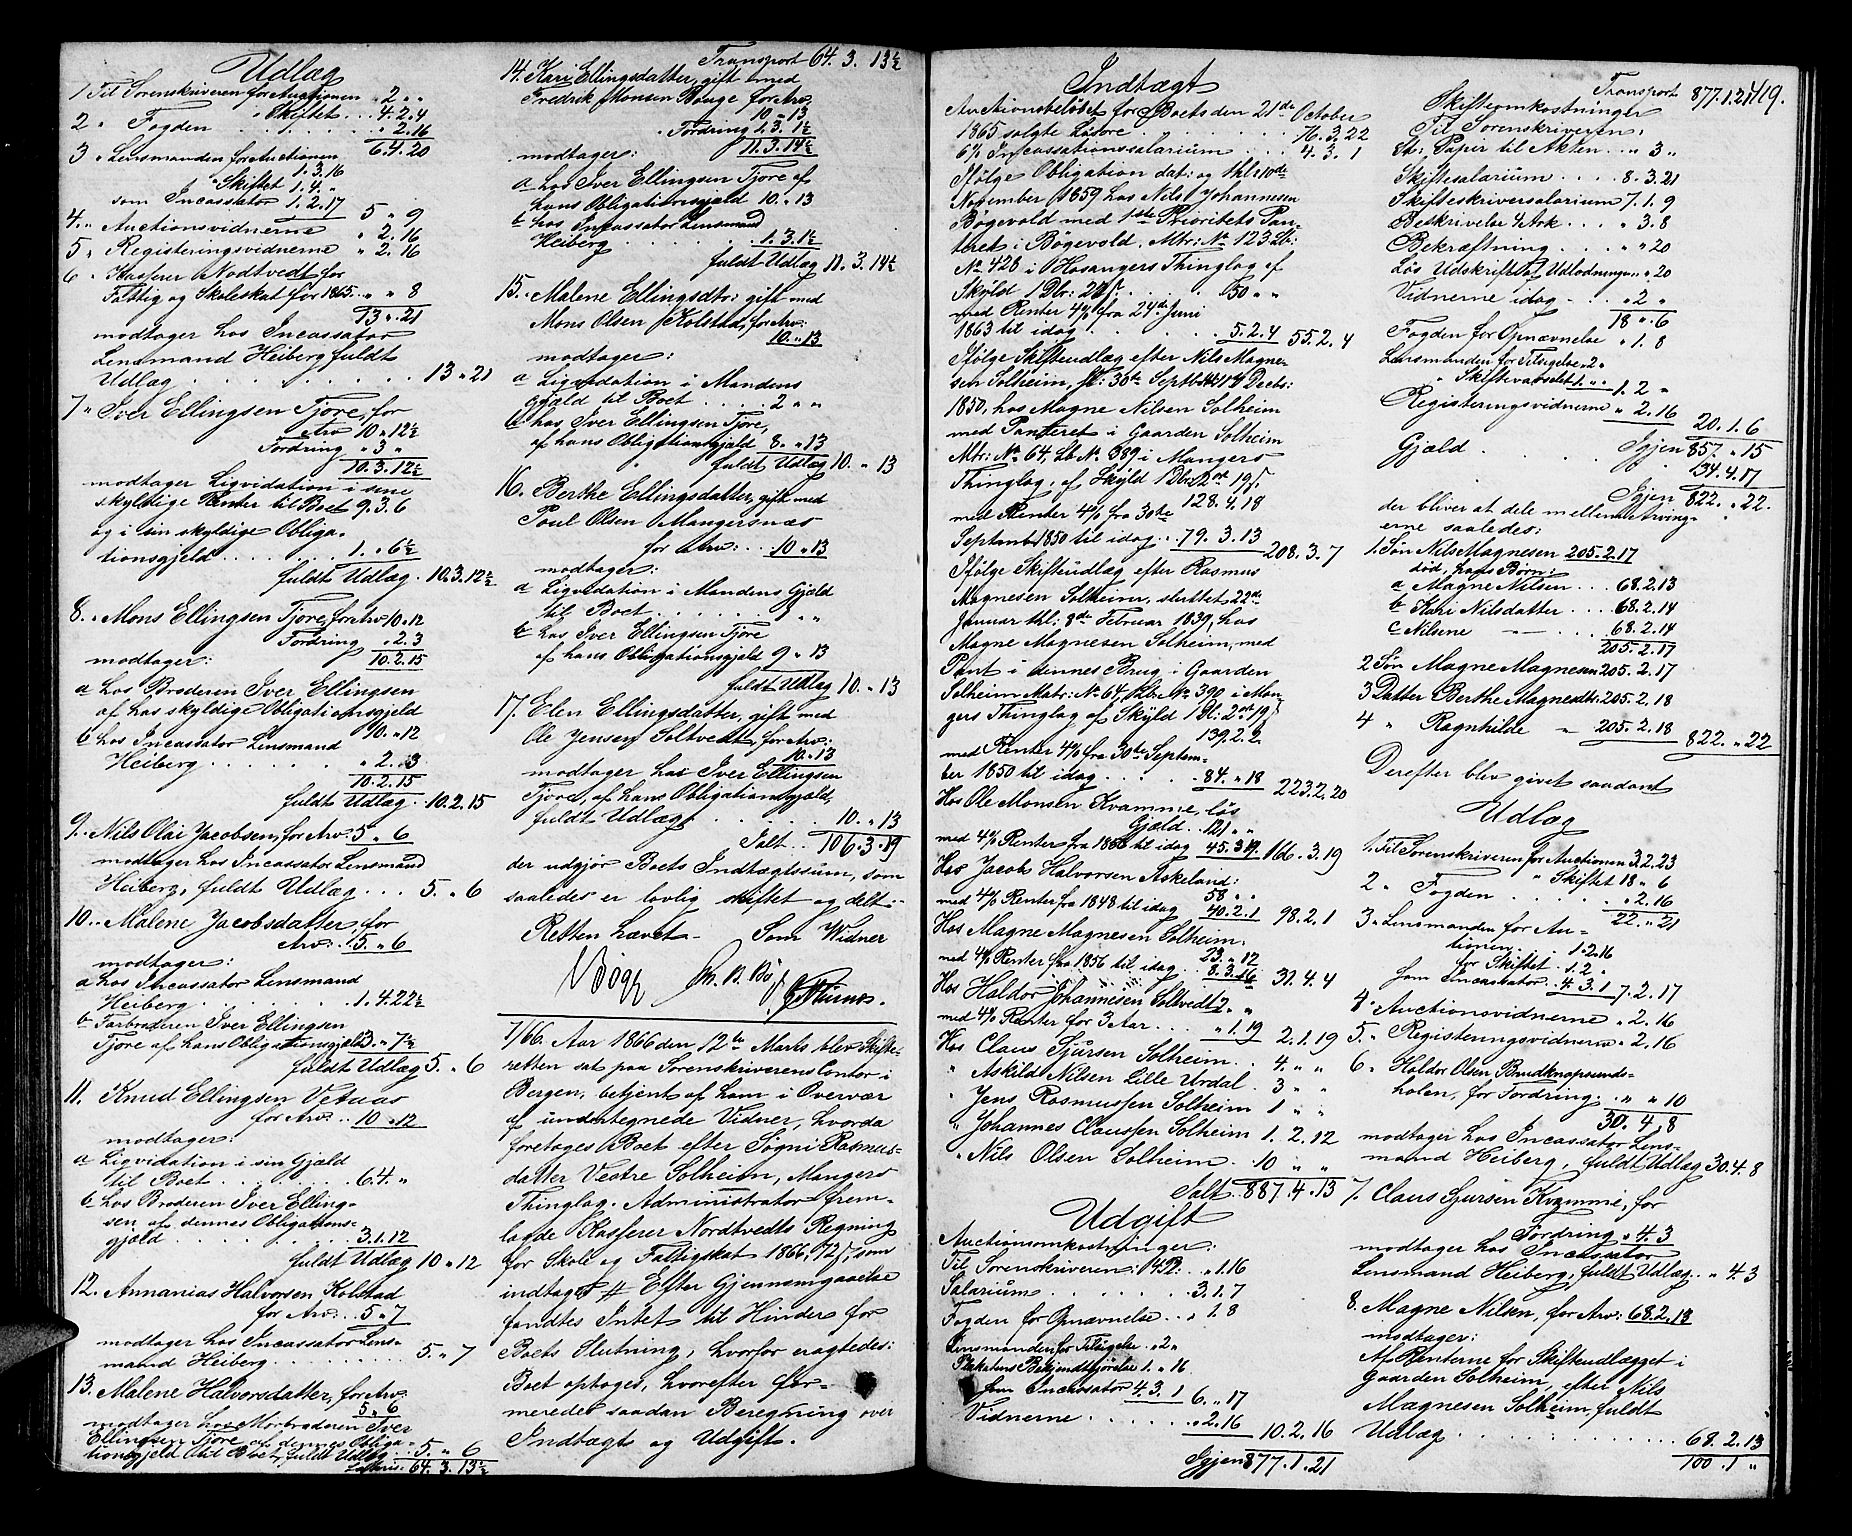 Udlæg
1 Til Sorenskriveren for Auctionen 2 „ „
„ Skiftet ... 4.2.4
2 „ Fogden . . 1. . . . „ 2.16
6.4.20
3 „ Lensmanden for Auctionen
1.3.16
„ Skiftet 1.4. „
som Incassator 1.2.17
5 „ 9
4. „ Auctionsvidnerne „ 2.16
5 „ Registeringsvidnerne „ 2.16
6 „ Kasserer Nodtvedt for
Fattig og Skoleskat for 1865. „ „ 8
13 „ 21
modtager hos Incassator
Lensmand Heiberg fuldt
Udlæg . . . . . . . . . 13 „ 21
7 „ Iver Ellingsen Tjore, for
Arv 10 „ 12½
Fordring „ 3 „
10.3.12½
modtager Liqvidation i sine
skyldige Renter til Boet 9.3.6
og i sin skyldige Obliga-
tionsgjeld . . . . . . 1. „ 6½
fuldt Udlæg . 10.3.12½
8. „ Mons Ellingsen Tjore, for Arv 10 „ 12
Fordring „ 2.3
modtager: 10.2.15
a hos Broderen Iver Ellingsen
af hos skyldige Obligationsgjeld
10. „ 12
b hos Incassator Lensmand
Heiberg . . . . . . „ 2. „ 3
10.2.15
fuldt Udlæg . 10.2.15
9. „ Nils Olai Jacobsen, for Arv 5 „ 6
modtager hos Incassator Lensmand
Heiberg, fuldt Udlæg . . . 5 „ 6
10. „ Malene Jacobsdatter, for
Arv: 5 „ 6
modtager:
a hos Incassator Lensmand
Heiberg . . . . . . . 1.4.22½
b Farbroderen Iver Ellingsen
Tjore af hans Obligationsgjeld 3. „ 7½
fuldt Udlæg 5. „ 6
11. Knud Ellingsen Vetaas
for Arv: . . 10 „ 12
modtager:
a Liqvidation i sin Gjeld
til Boet . . . . . . . 6.4. „
b hos Broderen Iver Elling-
sen af dennes Obligations-
gjeld . . . . . . . . . 3.1.12
fuldt Udlæg 10 „ 12
12. Annanias Halvorsen Kolstad
for Arv . . 5 „ 7
modtager hos Incassator Lens-
mand Heiberg . . . . . . . 5. „ 7
13. Malene Halvorsdatter, for Arv.
5 „ 6
modtager hos Morbroderen Iver
Ellingsen Tjore af dennes Obliga-
tionsgjeld til Boet, fuldt Udlæg . . 5. „ 6
Lateris: 64.3.13½
Transport 64.3.13½
14. Kari Ellingsdatter, gift med
Fredrik Monsen Bouge for Arv.
10 „ 13
„ Fordring 1.3.1½
modtager: 11.3.14½
a hos Iver Ellingsen Tjore af
hans Obligationsgjeld 10. „ 13
b hos Incassator Lensmand
Heiberg . . . . . . . 1.3.1½
fuldt Udlæg 11.3.14½
15. Malene Ellingsdtr: gift med
Mons Olsen Kolstad, for Arv.
10. „ 13
modtager:
a Liqvidation i Mandens
gjeld til Boet . . . . 2 „ „
b hos Iver Ellingsen Tjore,
af hans Obligationsgjeld 8. „ 13
fuldt Udlæg 10. „ 13
16. Berthe Ellingsdatter, gift med
Poul Olsen Mangersnæs
for Arv: . . . 10 „ 13
modtager:
a Liqvidation i Mandens Gjeld
til Boet . . . . . . . 1 „ „
b hos Iver Ellingsen Tjore
af hans Obligationsgjeld 9 „ 13
fuldt Udlæg 10. „ 13
17. Elen Ellingsdatter, gift med
Ole Jensen Soltvedt, for Arv:
10. „ 13
modtager hos Iver Ellingsen
Tjore, af hans Obligationsgjeld,
fuldt Udlæg . . . . . . 10. „ 13
Ialt . . 106.3.19
der udgjør Boets Indtægtssum, som
saaledes er lovlig skiftet og delt. -
Retten hævet - Som Vidner
1/66. Aar 1866 den 12te Marts blev Skifte-
retten sat paa Sorenskriverens Contor i
Bergen, betjent af ham i Overvær
af undertegnede Vidner, hvorda
foretoges Boet efter Søgni Rasmus-
datter Vestre Solheim, Mangers
Thinglag. Administrator frem-
lagde Kasserer Nordtvedts Regning
for Skole og Fattigskat 1866, 72 ſ, som
indtaget # Efter Gjennemgaaelse
fandtes Intet til Hinder for
Boets Slutning, hvorfor eragtedes:
Boet optages, hvorefter for-
meredes saadan Beregning over
Indtægt og Udgift.
Indtægt
Auctionsbeløbet for Boets den 21de October
1865 solgte Løsøre . . . . . . . 76.3.22
6% Incassationssalarium . . . 4.3.1
Ifølge Obligation dat: og thl: 10de
November 1859 hos Nils Johannesen
Bøgevold med 1ste Prioritets Pan-
teret i Bøgevold, Mtr: No 123 Lb:
No 428 i Hosangers Thinglag af
Skyld 1 Dbr: 20 ſ . . . . . 50 „ „
med Renter 4% fra 24de Juni
1863 til idag . . . . . . . 5.2.4 55.2.4
Ifølge Skifteudlæg efter Nils Magne-
sen Solheim, sl: 30te Septb: thl: 14 Decbr:
1850, hos Magne Nilsen Solheim
med Panteret i Gaarden Solheim
Mtr: No 64, Lb No 389 i Mangers
Thinglag, af Skyld 1 Dlr: 2 ort 19 ſ.
128.4.18
med Renter 4% fra 30te
Septemb: 1850 til idag . . 79.3.13
208.3.7
Ifølge Skifteudlæg efter Rasmus
Magnesen Solheim, sluttet 22de
Januar thl: 8de Februar 1839, hos
Magne Magnesen Solheim, med
Pant i dennes Brug i Gaarden
Solheim Matr: No 64, Lbe No 390 i Man-
gers Thinglag af Skyld 1 Dl: 2 ort 19 ſ
139.2.2.
med Renter 4% fra 30te Septem-
ber 1850 til idag . . . . . 84. „ 18
223.2.20
Hos Ole Monsen Kvamme, løs
Gjæld . . 121 „ „
med 4% Renter fra 1856 til idag 45.3.19 166.3.19
Hos Jacob Halvorsen Askeland:
58 „ „
med 4% Renter fra 1848 til idag 40.2.1 98.2.1
Hos Magne Magnesen Solheim,
23. „ 12
med 4% Renter fra 1856 til idag . 8.3.16 31.4.4
Hos Haldor Johannesen Soltvedt 2 „ „
med 4% Renter for 3 Aar . . . „ 1.19 2.1.19
Hos Claus Sjursen Solheim . 4. „ „
„ Askild Nilsen Lille Urdal . 3 „ „
„ Jens Rasmussen Solheim 1 „ „
„ Johannes Claussen Solheim 1.2.12
„ Nils Olsen Solheim . 10 „ „
Ialt . 887.4.13
Udgift
Auctionsomkostninger:
Til Sorenskriveren: . . „ 1.16
Salarium . . . . . . . 3.1.7
Fogden for Opnævnelse . . „ 1.8
Lensmanden for Tilsigelse . „ 2 „
Plakatens Bekjendtgjørelse 1. „ 16
som Incassator 4.3.1 6. „ 17
Vidnerne . . . . . . „ 2.16 10.2.16
Igjen 877.1.21
Transport 877.1.21 419.
Skifteomkostninger
Til Sorenskriveren:
St: Papir til Akten . . „ 3 „
Skiftesalarium . . . . 8.3.21
Skifteskriversalarium 7.1.9
Beskrivelse 4 Ark . . . „ 3.8
Bekræftning . . . . „ „ 20
Løs Udskrift af Udlodningen „ „ 20
Vidnerne idag . . „ 2 „
18 „ 6
Fogden for Opnævnelse „ 1.8
Lensmanden for Tilsigelse „ 2 „
„ Skiftevarselet 1. „ „ 1.2 „
Registeringsvidnerne „ 2.16
20.1.6
Igjen 857. „ 15
Gjæld . . . . . . 34.4.17
Igjen 822. „ 22.
der bliver at dele mellem Arving-
erne saaledes:
1. Søn Nils Magnesen 205.2.17
død, hans Børn:
a Magne Nilsen . . . 68.2.13
b Kari Nilsdatter . . . 68.2.14
c Nilsene — . . . 68.2.14
205.2.17
2 Søn Magne Magnesen 205.2.17
3 Datter Berthe Magnedtr. 205.2.18
4 „ Ragnhilde — 205.2.18 822. „ 22
Derefter blev givet saadant
Udlæg
1. Til Sorenskriveren for Auctionen 3.2.23
„ Skiftet 18 „ 6
2 „ Fogden . . . . . . „ 2.16
22. „ 21
3 „ Lensmanden for Au-
tionen . . . 1.2.16
for Skiftet . 1.2 „
som Incassator . 4.3.1 7.2.17
4 „ Auctionsvidnerne „ 2.16
5. „ Registeringsvidnerne „ 2.16
6 „ Haldor Olsen Brudknapsunds-
holen, for Fordring . . „ „ 10
30.4.8
modtager hos Incassator Lens-
mand Heiberg, fuldt Udlæg 30.4.8
7. Claus Sjursen Kvamme, for
Fordring „ 4.3
modtager hos Incassator
Lensmand Heiberg, fuldt Udlæg . „ 4.3
8. Magne Nilsen, for Arv: 68.2.13
modtager:
Af Renterne for Skifteudlægget i
Gaarden Solheim, efter Nils
Magnesen Solheim, fuldt
Udlæg . . . . . . . . . . 68.2.13
100.1 „